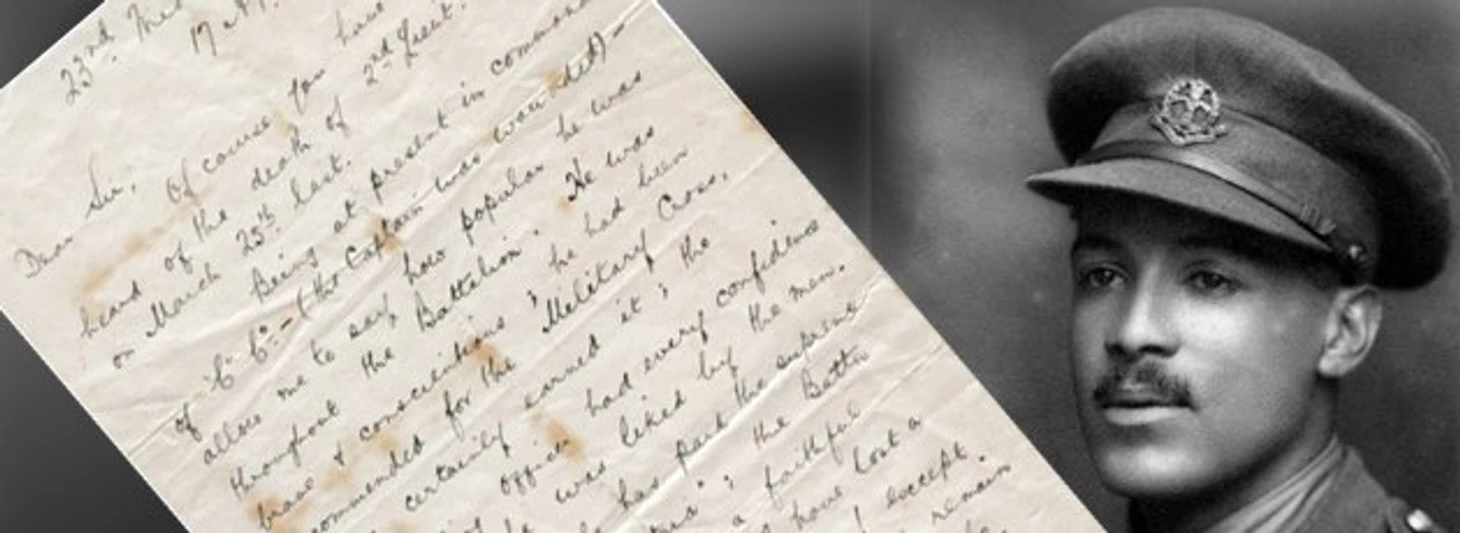 23rd
17
Dear Sir, Of course you have
heard of the death of 2nd Lieut.
on March 25th last.
Being at present in command
of "C" Co - (the Captain was wounded) -
allow me to say how popular he was
throughout the Battalion. He was
brave & conscientious; he had been
commended for the Military Cross,
certainly earned it; the
officer had every confidence
was liked by the men.
has paid the supreme
tria"; the Battn
a faithful
have lost a
I except.
remain